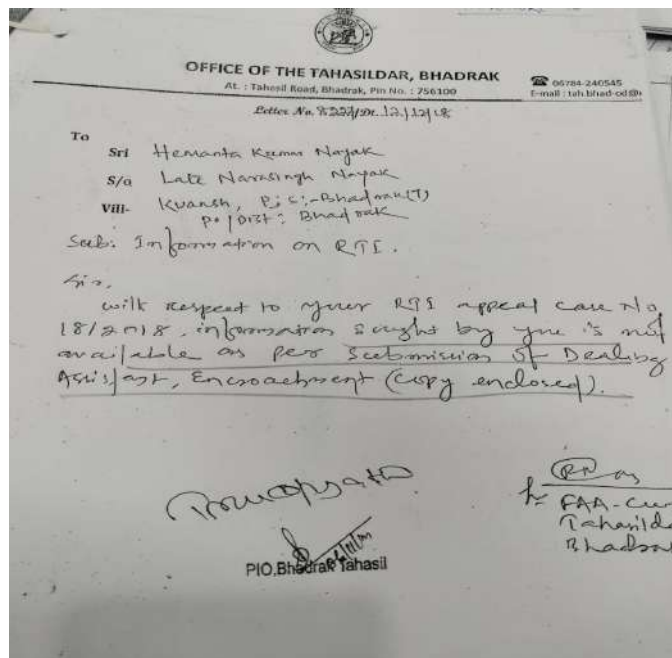 OFFICE OF THE TAHASILDAR, BHADRAK
At. : Tahasil Road, Bhadrak, Pin No. : 756100
☎ 06784-240545
E-mail : tah.bhad-od@
Letter No. 8227/Dt. 12/12/18
To
Sri Hemanta Kumar Nayak
S/o Late Narasingh Nayak
Vill- Kuansh, P.S:-Bhadrak(T)
Po/Dist: Bhadrak
Sub: Information on RTI.
Sir,
With respect to your RTI appeal case No
18/2018, information sought by you is not
available as per Submission of Dealing
Assistant, Encroachment (Copy enclosed).
FAA-cum
Tahasilda
Bhadra
PIO.Bhadrak Tahasil